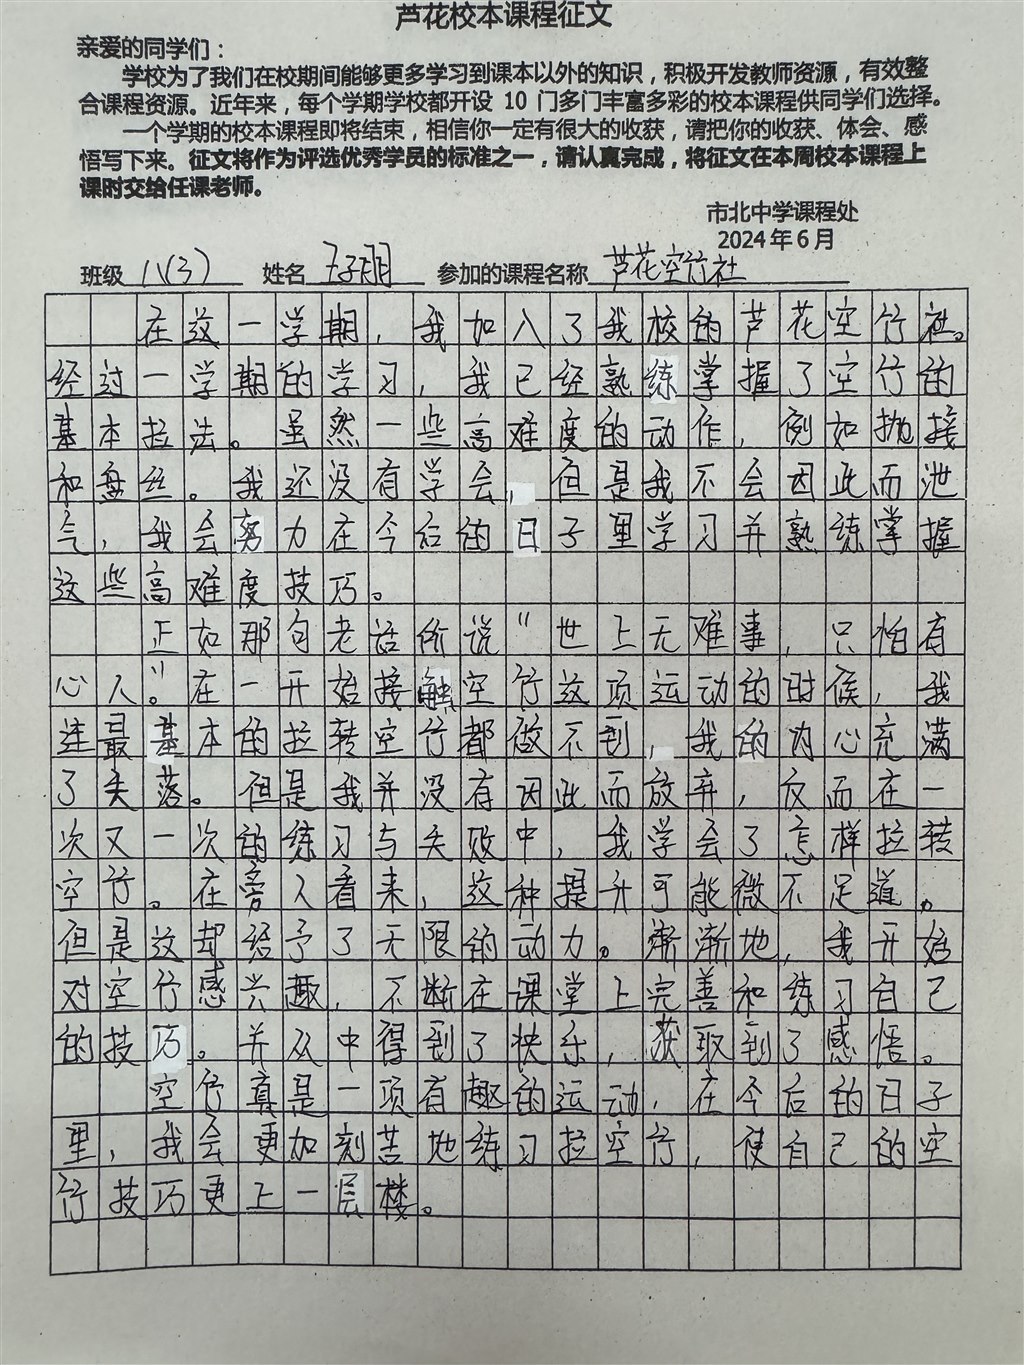 芦花校本课程征文
亲爱的同学们：
学校为了我们在校期间能够更多学习到课本以外的知识，积极开发教师资源，有效整
合课程资源。近年来，每个学期学校都开设 10 门多门丰富多彩的校本课程供同学们选择。
一个学期的校本课程即将结束，相信你一定有很大的收获，请把你的收获、体会、感
悟写下来。征文将作为评选优秀学员的标准之一，请认真完成，将征文在本周校本课程上
课时交给任课老师。
市北中学课程处
2024 年 6 月
班级 八(3) 姓名 参加的课程名称 芦花空竹社
在这一学期，我加入了我校的芦花空竹社。
经过一学期的学习，我已经熟练掌握了空竹的
基本拉法。虽然一些高难度的动作，例如抛接
和盘丝。我还没有学会，但是我不会因此而泄
气，我会努力在今后的日子里学习并熟练掌握
这些高难度技巧。
正如那句老话所说“世上无难事，只怕有
心人”。在一开始接触空竹这项运动的时候，我
连最基本的拉转空竹都做不到，我的内心充满
了失落。但是我并没有因此而放弃，反而在一
次又一次的练习与失败中，我学会了怎样拉转
空竹。在旁人看来，这种提升可能微不足道。
但是这却给予了无限的动力。渐渐地，我开始
对空竹感兴趣，不断在课堂上完善和练习自己
的技巧。并从中得到了快乐，获取到了感悟。
空竹真是一项有趣的运动，在今后的日子
里，我会更加刻苦地练习拉空竹，使自己的空
竹技巧更上一层楼。